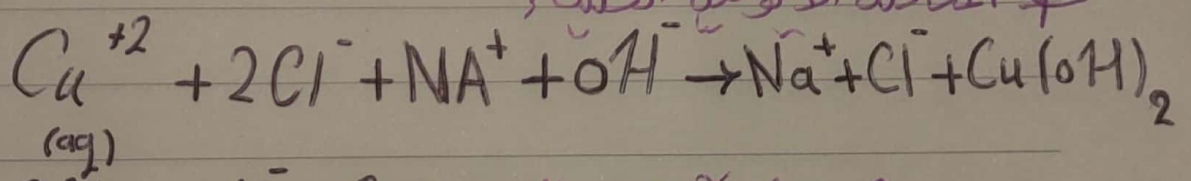 Cu⁺² + 2Cl⁻ + NA⁺ + OH⁻ → Na⁺ + Cl⁻ + Cu(OH)₂
(aq)